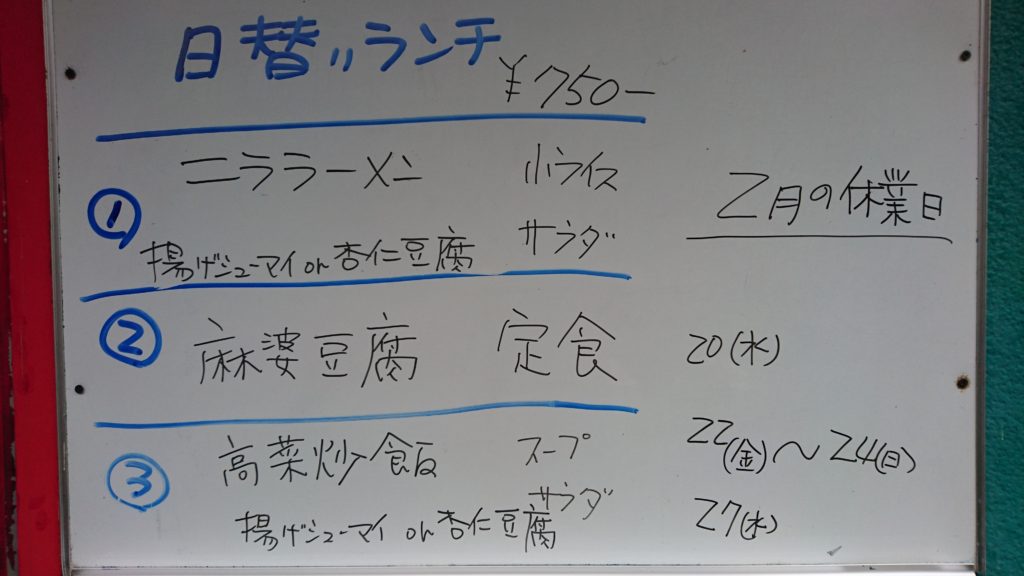 日替りランチ
¥750ー
① ニララーメン 小ライス
サラダ
揚げシューマイor杏仁豆腐
② 麻婆豆腐 定食
③ 高菜炒飯 スープ
サラダ
揚げシューマイ or 杏仁豆腐
2月の休業日
20(水)
22(金)〜24(日)
27(水)